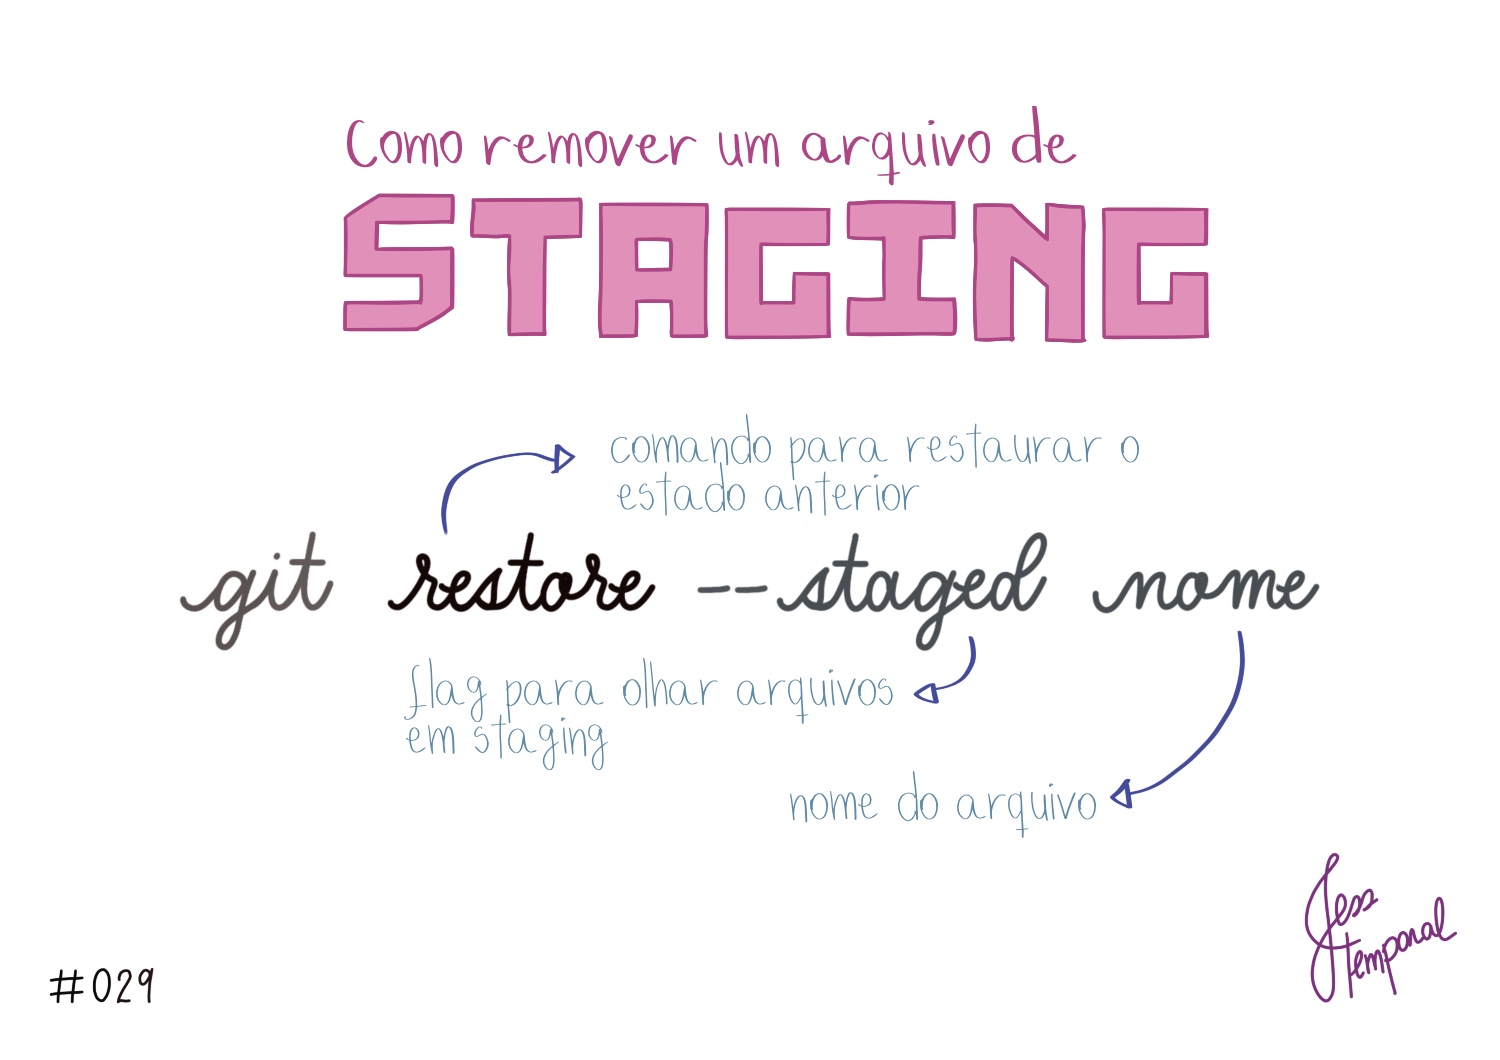 Como remover um arquivo de
STAGING
comando para restaurar o
estado anterior
git restore --staged nome
flag para olhar arquivos
em staging
nome do arquivo
Jess
temporal
#029